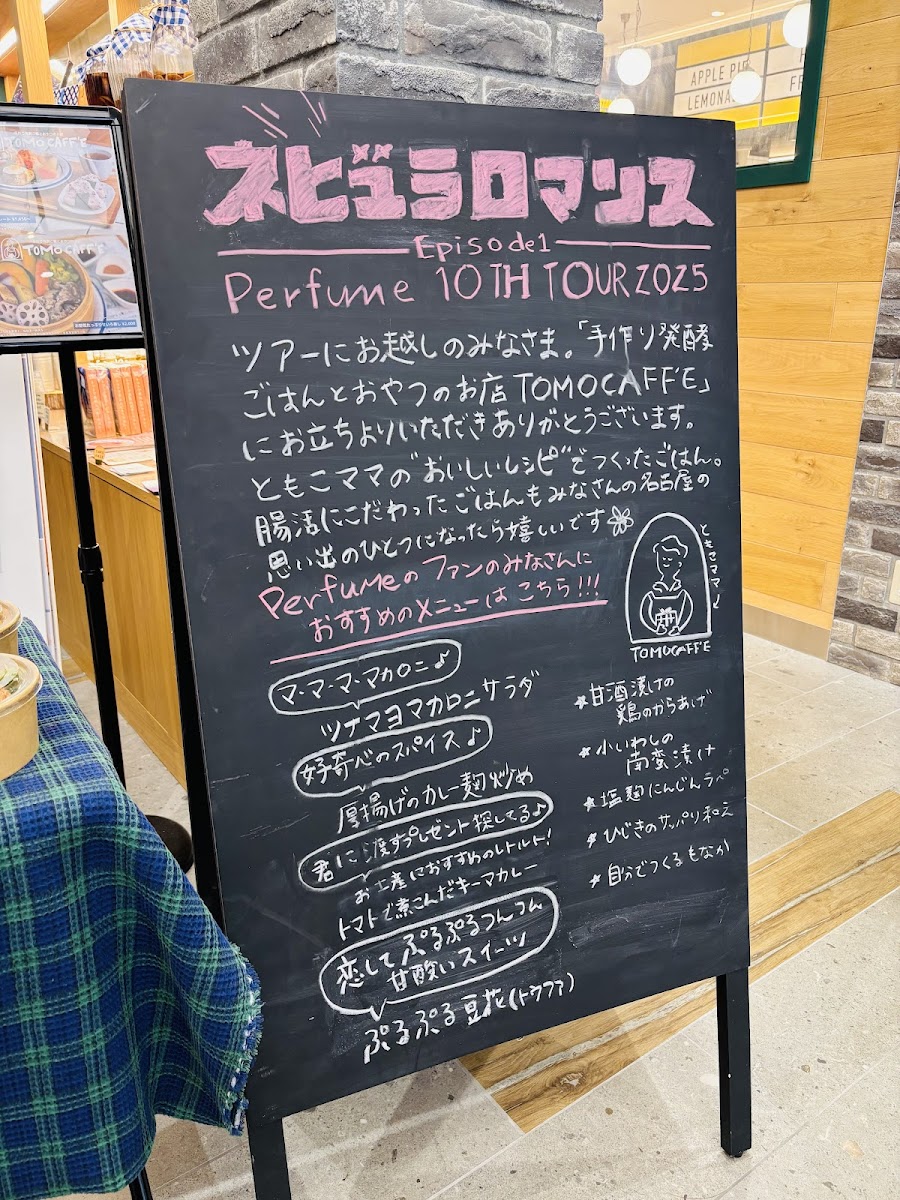 ネビュラロマンス
Episode1
Perfume 10TH TOUR 2025
ツアーにお越しのみなさま。「手作り発酵
ごはんとおやつのお店 TOMOCAFF'E」
にお立ちよりいただきありがとうございます。
ともこママの"おいしいレシピ"でつくったごはん。
腸活にこだわったごはんもみなさんの名古屋の
思い出のひとつになったら嬉しいです
Perfumeのファンのみなさんに
おすすめのメニューはこちら!!!
マ・マ・マ・マカロニ♪
ツナマヨマカロニサラダ
好奇心のスパイス♪
厚揚げのカレー麹炒め
君に渡すプレゼント探してる♪
お土産におすすめのレトルト!
トマトで煮こんだキーマカレー
恋してぷるぷるつんつん
甘酸いスイーツ
ぷるぷる豆花(トウファ)
ともこママ
TOMOCAFF'E
★甘酒漬けの
鶏のからあげ
★小いわしの
南蛮漬け
★塩麹にんじんラペ
★ひじきのサッパリ和え
★自分でつくるもなか
TOMO CAFF'E
TOMO CAFF'E
APPLE PIE
LEMONA